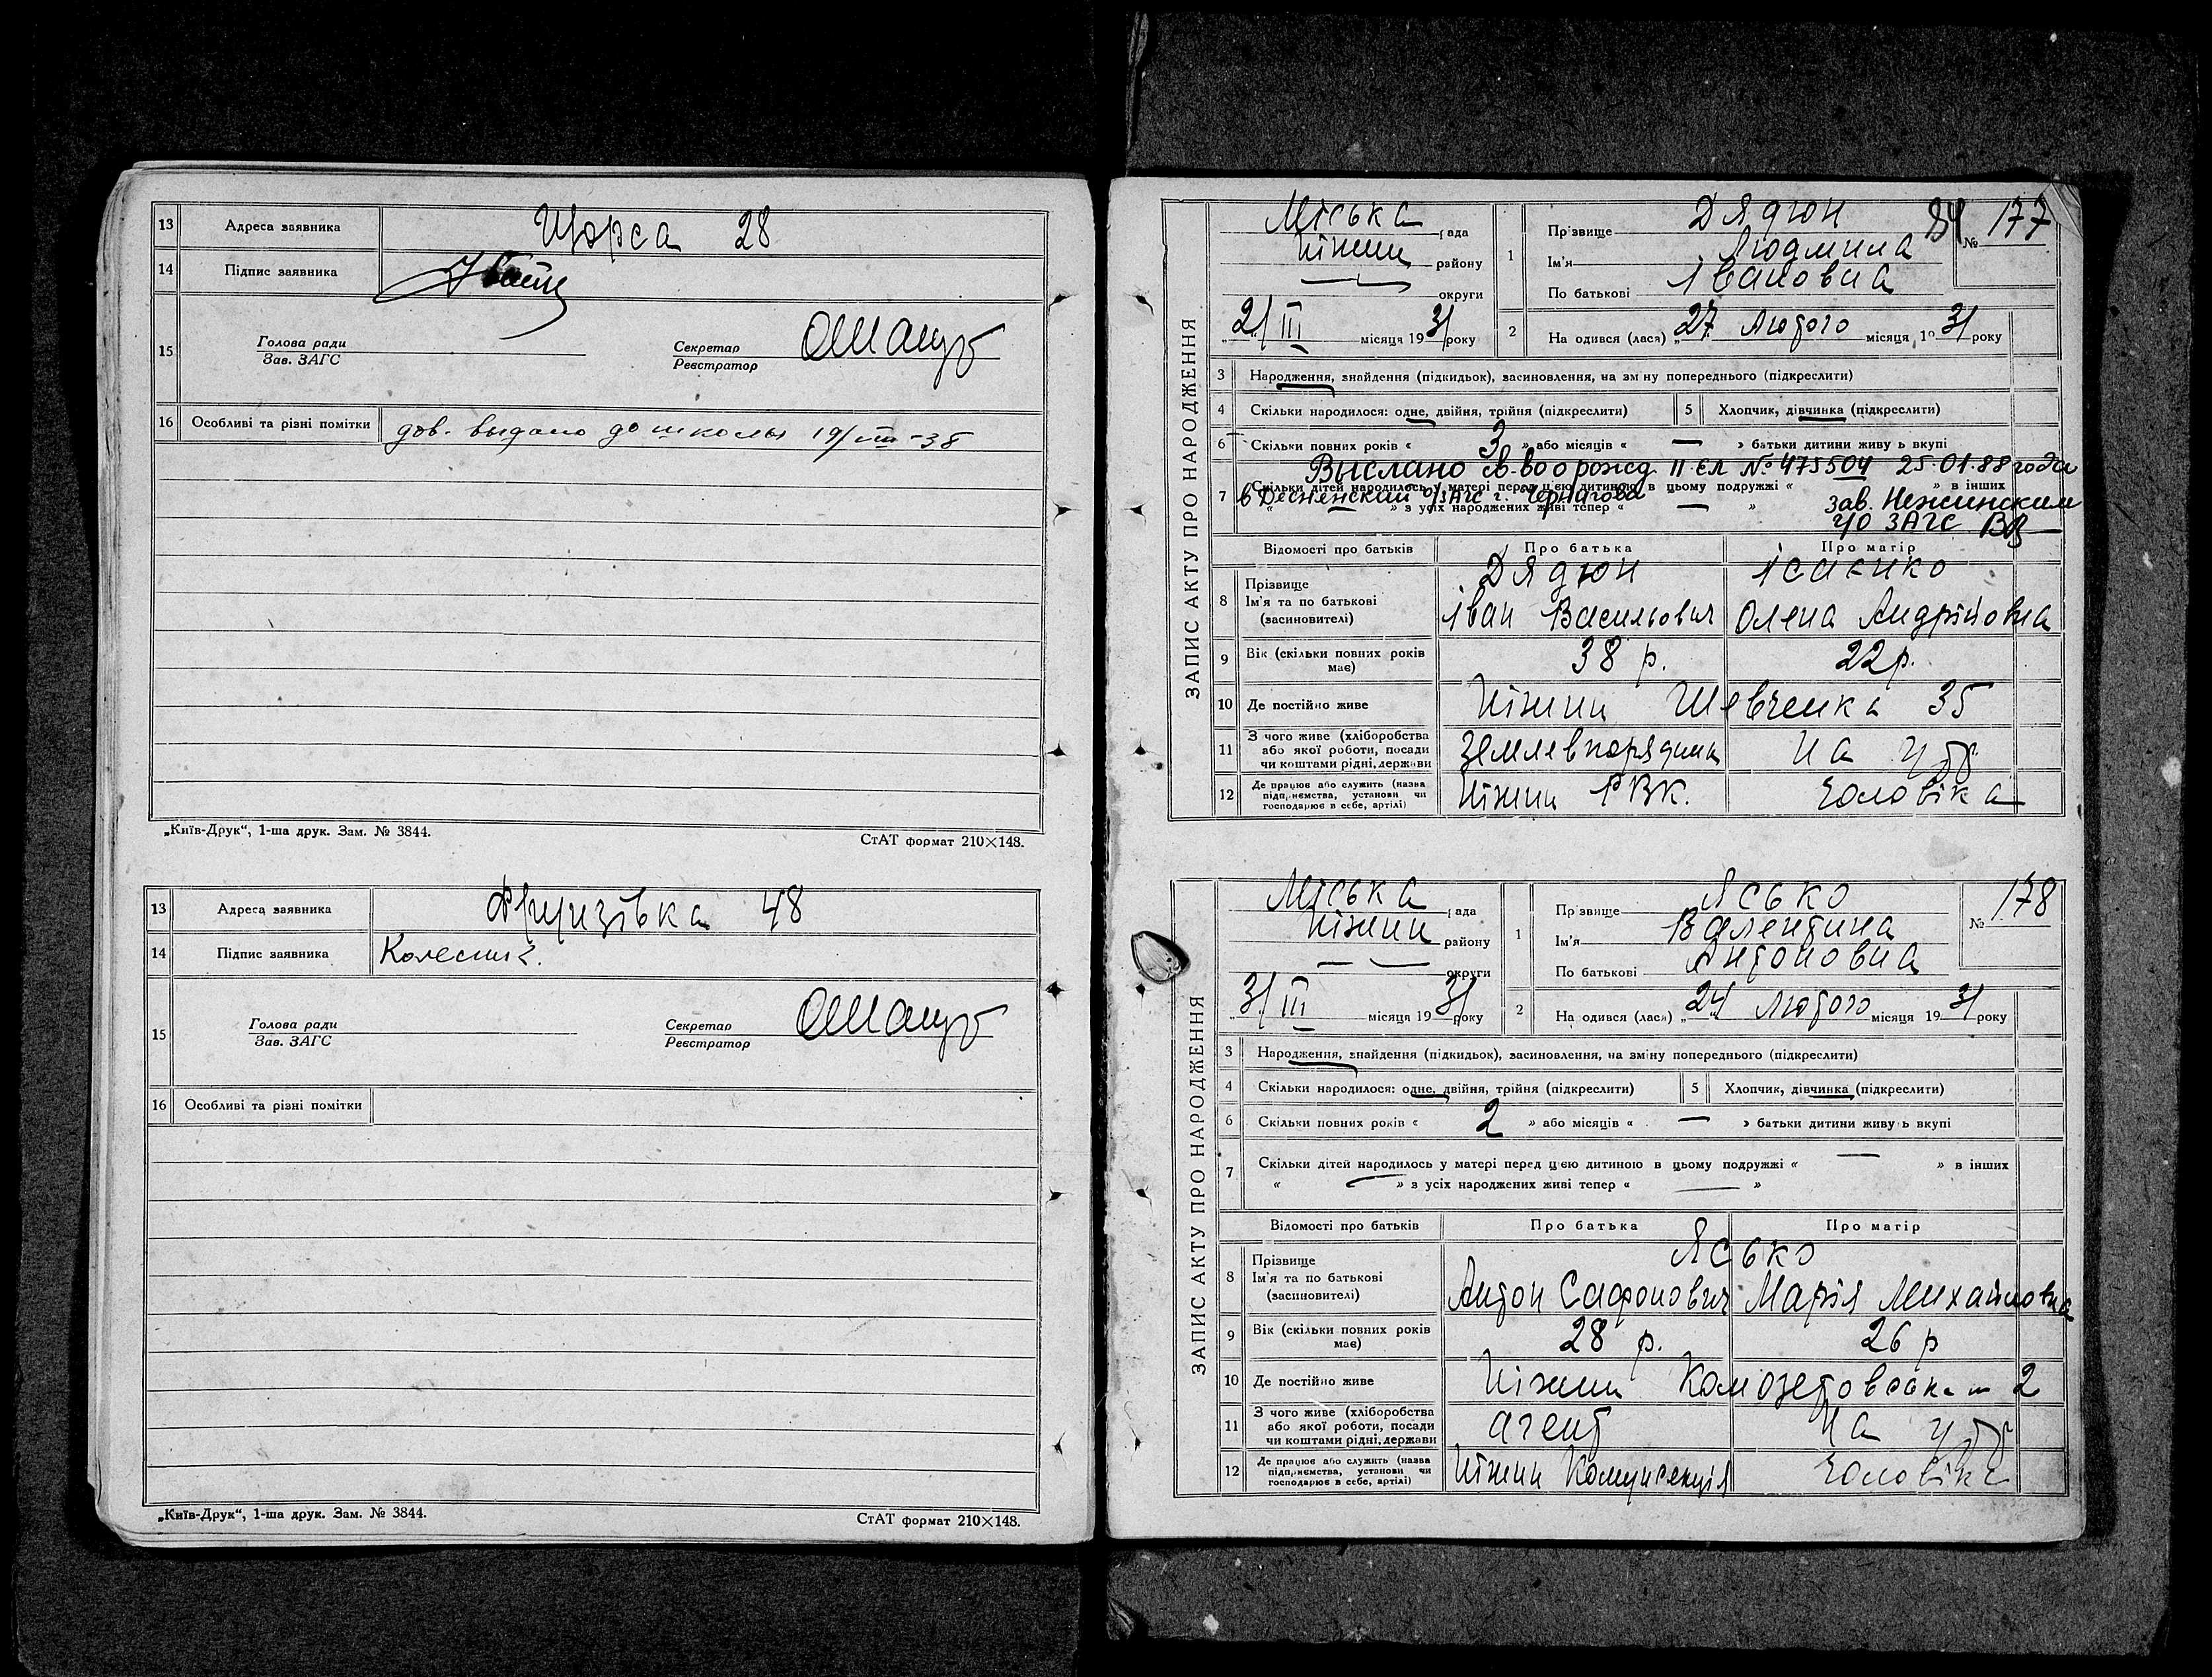 13 Адреса заявника Щорса 28
14 Підпис заявника
15 Голова ради
Зав. ЗАГС
Секретар
Реєстратор
16 Особливі та різні помітки дов. выдано до школы 19/VIII-38
„Київ-Друк“, 1-ша друк. Зам. № 3844.
СтАТ формат 210×148.
13 Адреса заявника 48
14 Підпис заявника Колесник
15 Голова ради
Зав. ЗАГС
Секретар
Реєстратор
16 Особливі та різні помітки
„Київ-Друк“, 1-ша друк. Зам. № 3844.
СтАТ формат 210×148.
ЗАПИС АКТУ ПРО НАРОДЖЕННЯ
Міська рада
Ніжин району
— округи
„2/ III місяця 1931 року
1 Прізвище Дядюн
Ім'я Людмила
По батькові Івановна
84 № 177
2 На одився (лася) „27 Лютого місяця 1931 року
3 Народження, знайдення (підкидьок), засиновлення, на зміну попереднього (підкреслити)
4 Скільки народилося: одне, двійня, трійня (підкреслити) 5 Хлопчик, дівчинка (підкреслити)
6 Скільки повних років « 3 » або місяців « — » батьки дитини живуть вкупі
Выслано св-во о рожд. II ЕЛ № 475504 25.01.88 года
7 Скільки дітей народилось у матері перед цією дитиною в цьому подружжі « » в інших
в Деснянский о/ЗАГС г. Чернигова
« » з усіх народжених живі тепер « — »
зав. Нежинским
г/о ЗАГС
Відомості про батьків Про батька Про матір
8 Прізвище
Ім'я та по батькові
(засиновителі)
Дядюн
Іван Васильович
Ісаєнко
Олена Андрійовна
9 Вік (скільки повних років має) 38 р. 22 р.
10 Де постійно живе Ніжин Шевченка 35
11 З чого живе (хліборобства або якої роботи, посади чи коштами рідні, держави Землевпорядник на утр
12 Де працює або служить (назва підприємства, установи чи господарює в себе, артілі) Ніжин РВК. чоловіка
ЗАПИС АКТУ ПРО НАРОДЖЕННЯ
Міська рада
Ніжин району
— — округи
„3/ III місяця 1931 року
1 Прізвище Ясько
Ім'я Валентина
По батькові Антоновна
№ 178
2 На одився (лася) „24 Лютого місяця 1931 року
3 Народження, знайдення (підкидьок), засиновлення, на зміну попереднього (підкреслити)
4 Скільки народилося: одне, двійня, трійня (підкреслити) 5 Хлопчик, дівчинка (підкреслити)
6 Скільки повних років « 2 » або місяців « — » батьки дитини живуть вкупі
7 Скільки дітей народилось у матері перед цією дитиною в цьому подружжі « — » в інших
« — » з усіх народжених живі тепер « — »
Відомості про батьків Про батька Про матір
8 Прізвище
Ім'я та по батькові
(засиновителі)
Ясько
Антон Сафонович Марія Михайловна
9 Вік (скільки повних років має) 28 р. 26 р
10 Де постійно живе Ніжин 2
11 З чого живе (хліборобства або якої роботи, посади чи коштами рідні, держави агент на утр
12 Де працює або служить (назва підприємства, установи чи господарює в себе, артілі) Ніжин чоловіка